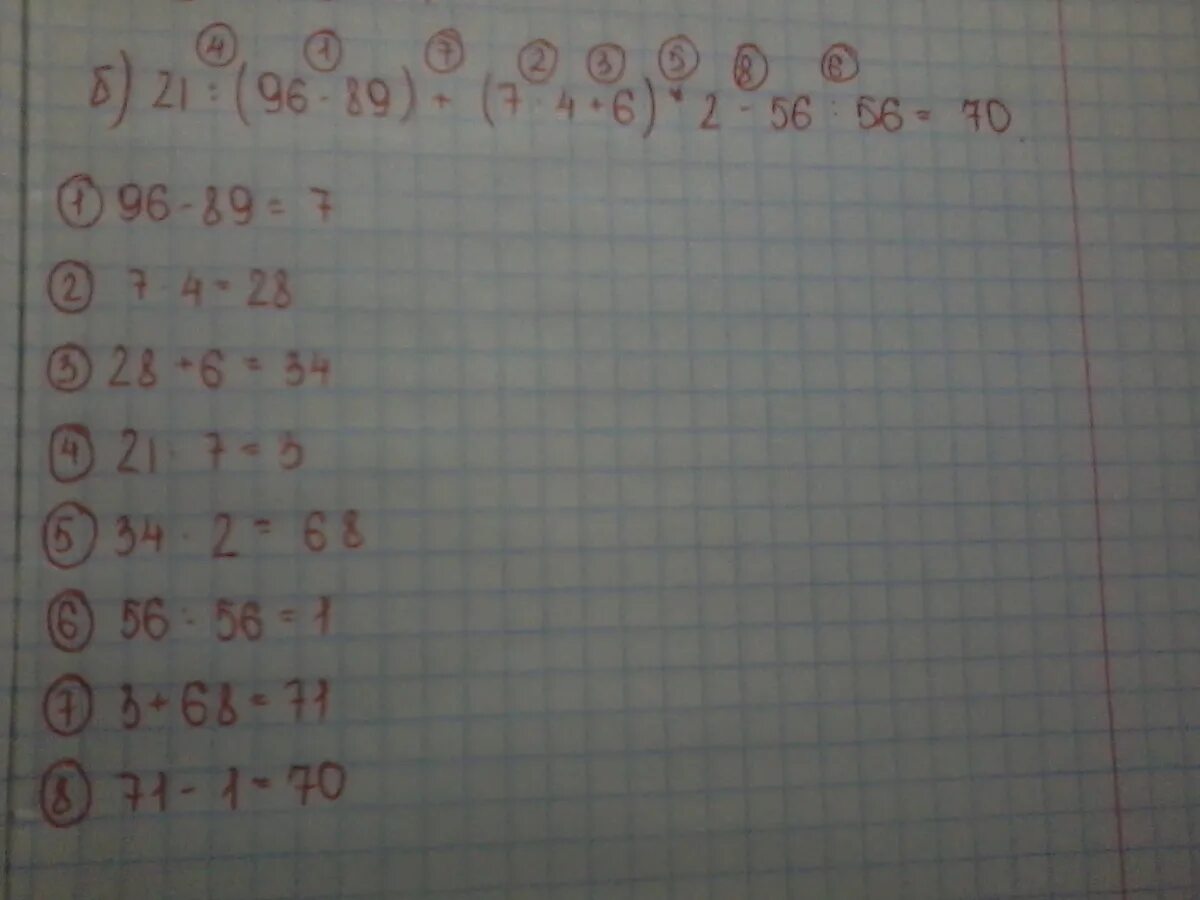 ④ ① ⑦ ② ③ ⑤ ⑧ ⑥
б) 21 : (96 - 89) + (7 · 4 + 6) · 2 - 56 : 56 = 70
① 96 - 89 = 7
② 7 · 4 = 28
③ 28 + 6 = 34
④ 21 : 7 = 3
⑤ 34 · 2 = 68
⑥ 56 : 56 = 1
⑦ 3 + 68 = 71
⑧ 71 - 1 = 70